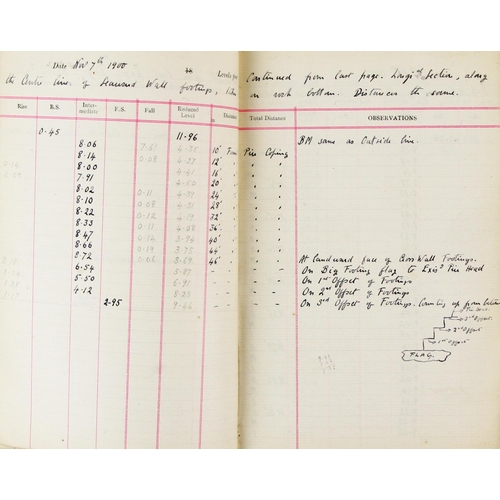 Date Nov 7th 1900 18 Levels for Continued from last page. Longl Section, along
the Centre line of Seaward Wall footings, on rock bottom. Distances the same.
Rise B.S. Inter-mediate F.S. Fall Reduced Level Distance Total Distance OBSERVATIONS
0.45 11.96 BM same as Outside line.
8.06 7.61 4.35 10' From Pier Coping
8.14 0.08 4.27 12' " " "
8.00 4.41 16' " " "
7.91 20' " " "
8.02 0.11 24' " " "
8.10 0.08 28' " " "
8.22 0.12 4.19 " " "
8.33 0.11 4.08 36' " " "
8.47 0.14 3.94 40' " " "
8.66 0.19 3.75 44' " " "
8.72 0.06 3.69 46' " " " At landward face of Boss Wall Footings.
6.54 5.87 - - - On Big Footing flag to Exist Pier Head
5.50 6.91 - - - On 1st Offset of Footings
4.12 - - - On 2nd Offset of Footings
2.95 9.46 - - - On 3rd Offset of Footings. Counting up from below
3rd Offset.
2nd Offset.
1st Offset
FLAG.